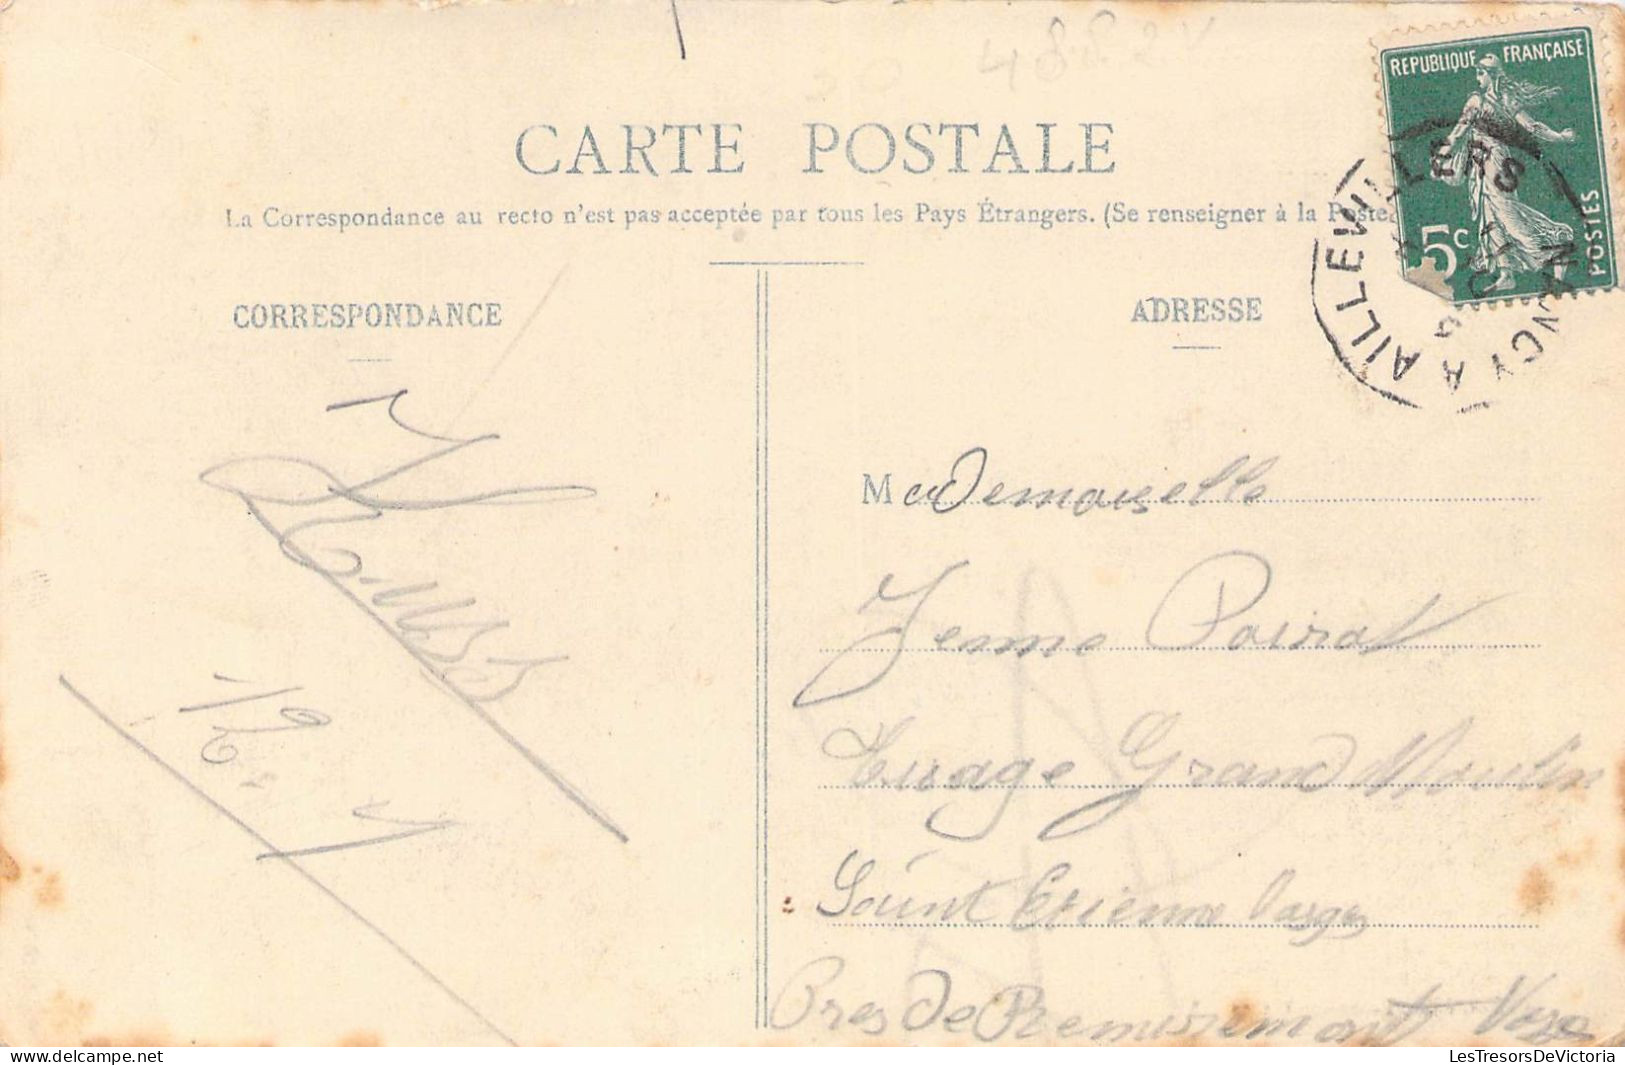 4882V
CARTE POSTALE
La Correspondance au recto n'est pas acceptée par tous les Pays Étrangers. (Se renseigner à la Poste
REPUBLIQUE FRANÇAISE
5c POSTES
AILLEVILLERS
NANCY A
CORRESPONDANCE
ADRESSE
Mademoiselle
Jenne Poirot
Grand Moulin
Saint Etienne
Pres de Remiremont
LesTresorsDeVictoria